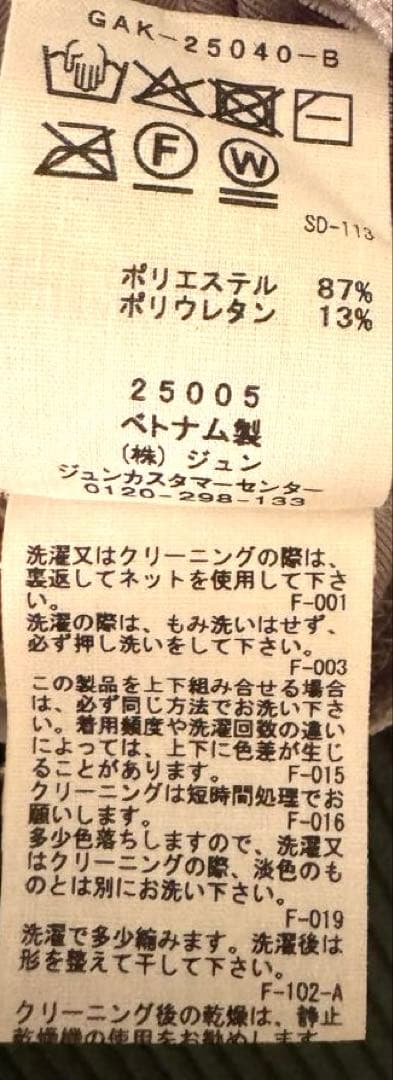 GAK-25040-B
F
W
SD-113
ポリエステル 87%
ポリウレタン 13%
25005
ベトナム製
(株) ジュン
ジュンカスタマーセンター
0120-298-133
洗濯又はクリーニングの際は、
裏返してネットを使用して下さ
い。 F-001
洗濯の際は、もみ洗いはせず、
必ず押し洗いをして下さい。
F-003
この製品を上下組み合せる場合
は、必ず同じ方法でお洗い下さ
い。着用頻度や洗濯回数の違い
によっては、上下に色差が生じ
ることがあります。 F-015
クリーニングは短時間処理でお
願いします。 F-016
多少色落ちしますので、洗濯又
はクリーニングの際、淡色のも
のとは別にお洗い下さい。
F-019
洗濯で多少縮みます。洗濯後は
形を整えて干して下さい。
F-102-A
クリーニング後の乾燥は、静止
乾燥機の使用をお勧めします